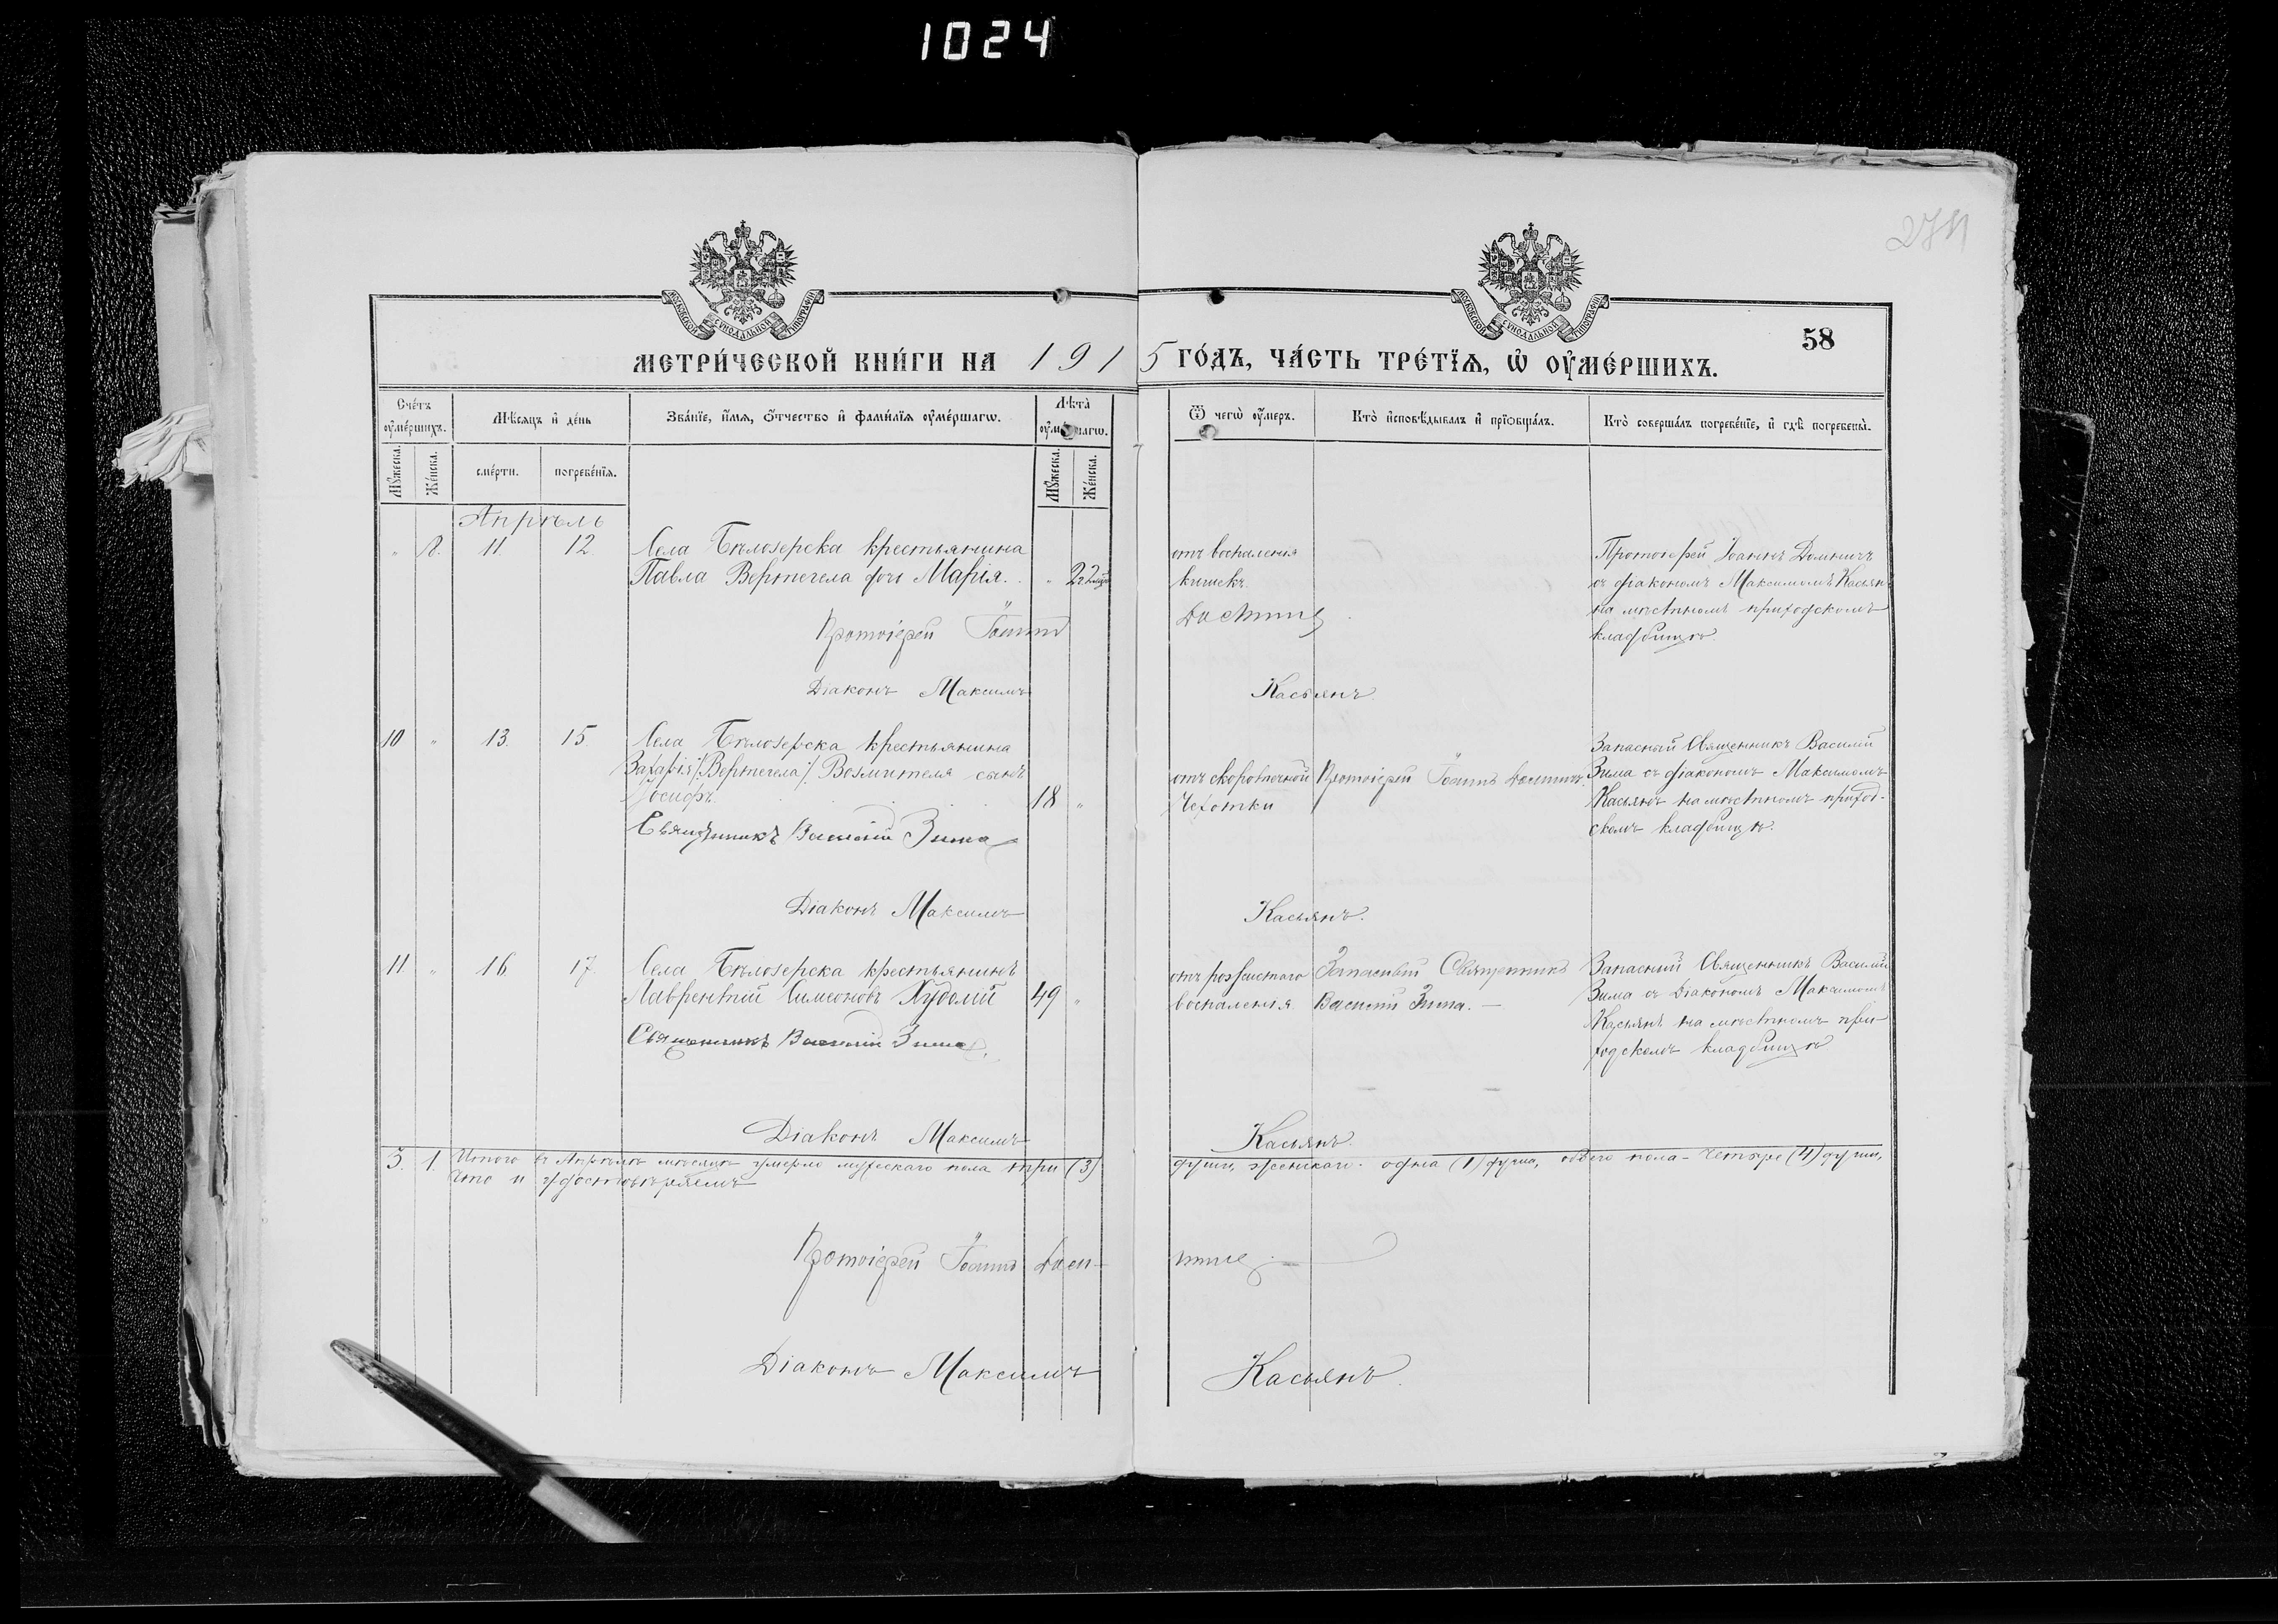 1024
МОСКОВСКОЙ СѴНОДАЛЬНОЙ ТИПОГРАФІИ
МОСКОВСКОЙ СѴНОДАЛЬНОЙ ТИПОГРАФІИ
58
МЕТРИ́ЧЕСКОЙ КНИ́ГИ НА 1915 ГО́ДЪ, ЧА́СТЬ ТРЕ́ТЇѦ, Ѡ҆ ОУ҆МЕ́РШИХЪ.
Сче́тъ оу҆ме́ршихъ.
Мѣ́сяцъ и҆ де́нь
Зва́нїе, и҆́мя, ѻ҆́тчество и҆ фами́лїя оу҆ме́ршагѡ.
Лѣта̀
Ѿ чегѡ̀ оу҆́меръ.
Кто̀ и҆сповѣ́дывалъ и҆ прїѡбща́лъ.
Кто̀ соверша́лъ погребе́нїе, и҆ гдѣ̀ погребены̀.
Мꙋ́жеска.
Же́нска.
сме́рти.
погребе́нїя.
Мꙋ́жеска.
Же́нска.
Апрѣль
" 8. 11. 12. Села Бѣлозерска крестьянина
Павла Вертегела дочь Марія. "
отъ воспаленія
кишекъ
Протоіерей Іоаннъ
съ діакономъ Максимомъ Касьян
на мѣстномъ приходскомъ
кладбищѣ.
Протоіерей Іоаннъ
Діаконъ Максимъ Касьянъ
10 " 13. 15. Села Бѣлозерска крестьянина
Захарія /Вертегела/ Возмителя сынъ
Іосифъ. 18 "
отъ скоротечной
чехотки
Протоіерей Іоаннъ
Запасный Священникъ Василій
Зима съ діакономъ Максимомъ
Касьянъ на мѣстномъ приход-
скомъ кладбищѣ.
Священникъ Василій Зима
Діаконъ Максимъ Касьянъ.
11 " 16. 17. Села Бѣлозерска крестьянинъ
Лаврентій Симеоновъ Худолій 49 "
отъ рожистаго
воспаленія.
Запасный Священникъ
Василій Зима. —
Запасный Священникъ Василій
Зима съ Діакономъ Максимомъ
Касьянъ на мѣстномъ при-
ходскомъ кладбищѣ
Священникъ Василій Зима
Діаконъ Максимъ Касьянъ.
3. 1. Итого въ Апрѣлѣ мѣсяцѣ умерло мужескаго пола три (3) души, женскаго одна (1) душа, обоего пола - четыре (4) души,
что и удостовѣряемъ
Протоіерей Іоаннъ
Діаконъ Максимъ Касьянъ.